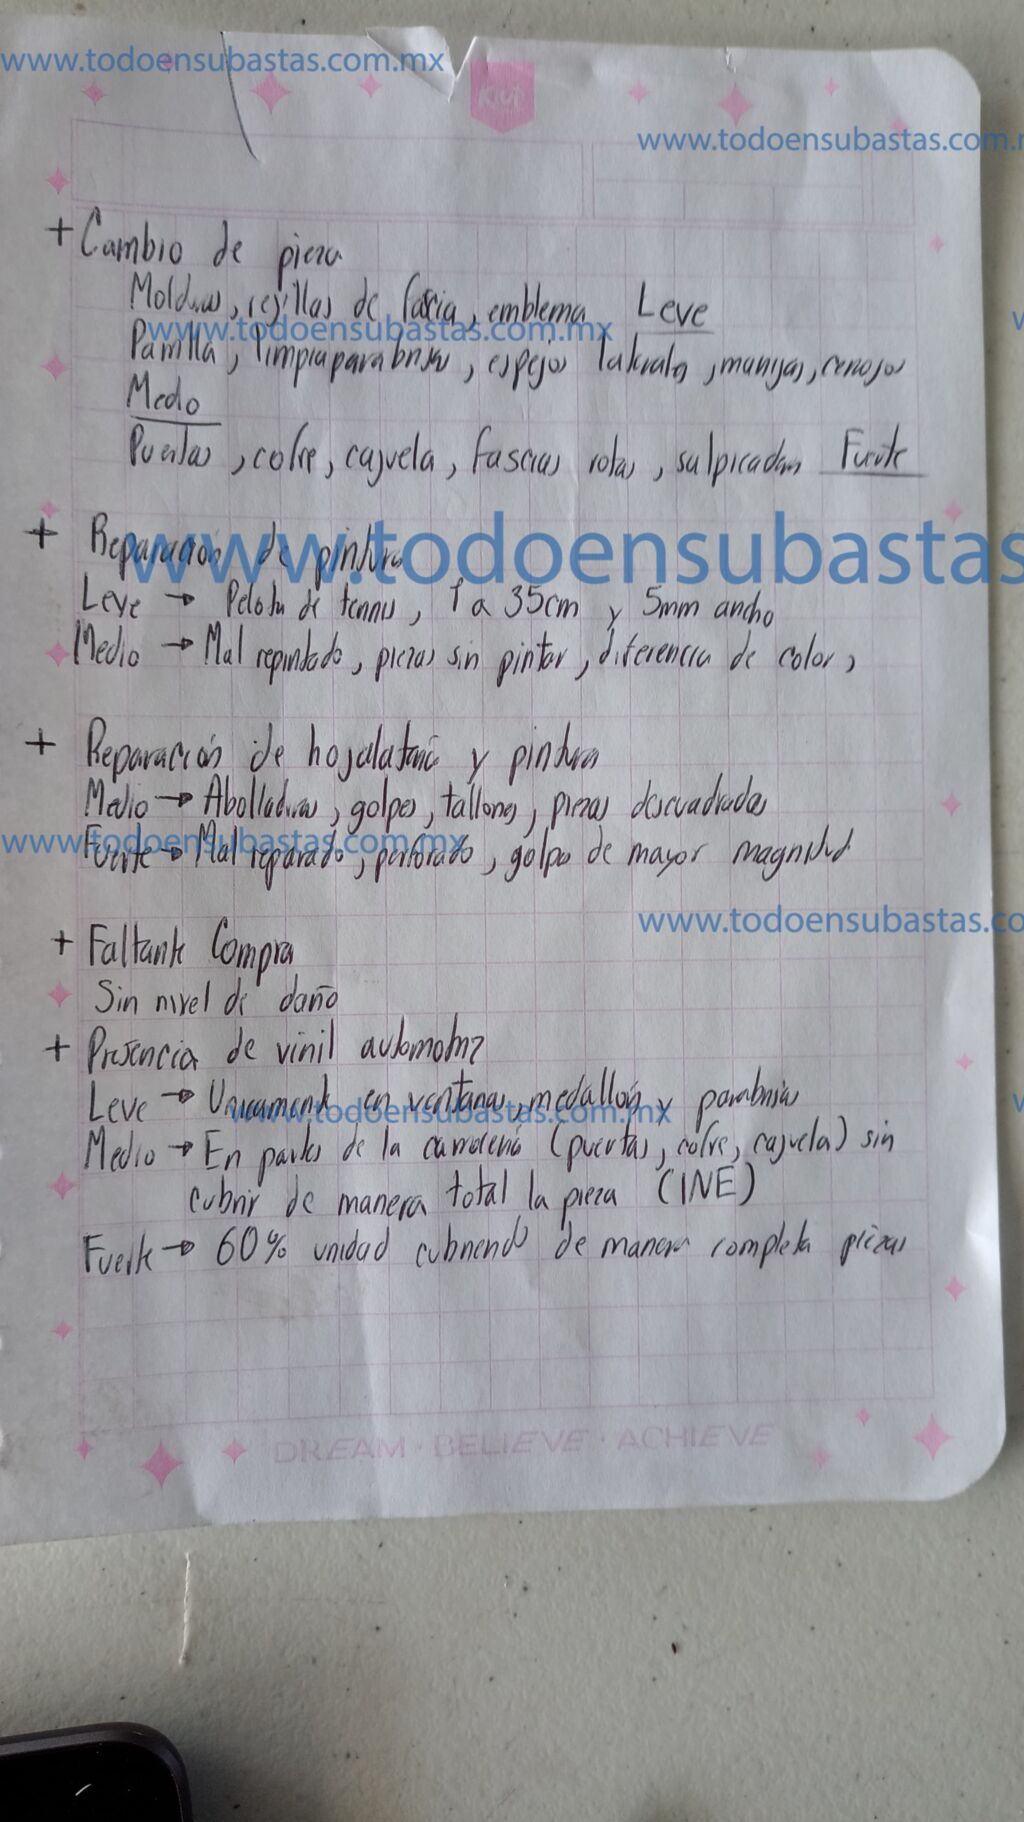 www.todoensubastas.com.mx
KIUT
www.todoensubastas.com.m
+ Cambio de pieza
Molduras, rejillas de fascia, emblema Leve
www.todoensubastas.com.mx
Parrilla, limpiaparabrisas, espejos laterales, manijas, cenojos
Medio
Puertas, cofre, cajuela, fascias rotas, salpicaderas Fuerte
+ Reparación de pintura
www.todoensubastas
Leve → Pelota de tennis, 1 a 35cm y 5mm ancho
Medio → Mal repintado, piezas sin pintar, diferencia de color,
+ Reparación de hojalatería y pintura
Medio → Abolladuras, golpes, tallones, piezas descuadradas
www.todoensubastas.com.mx
Fuerte → Mal reparado, perforado, golpe de mayor magnitud
www.todoensubastas.co
+ Faltante Compra
Sin nivel de daño
+ Presencia de vinil automotriz
Leve → Unicamente en ventanas, medallón y parabrisas
www.todoensubastas.com.mx
Medio → En partes de la carrocería (puertas, cofre, cajuela) sin
cubrir de manera total la pieza (INE)
Fuerte → 60% unidad cubriendo de manera completa piezas
DREAM · BELIEVE · ACHIEVE